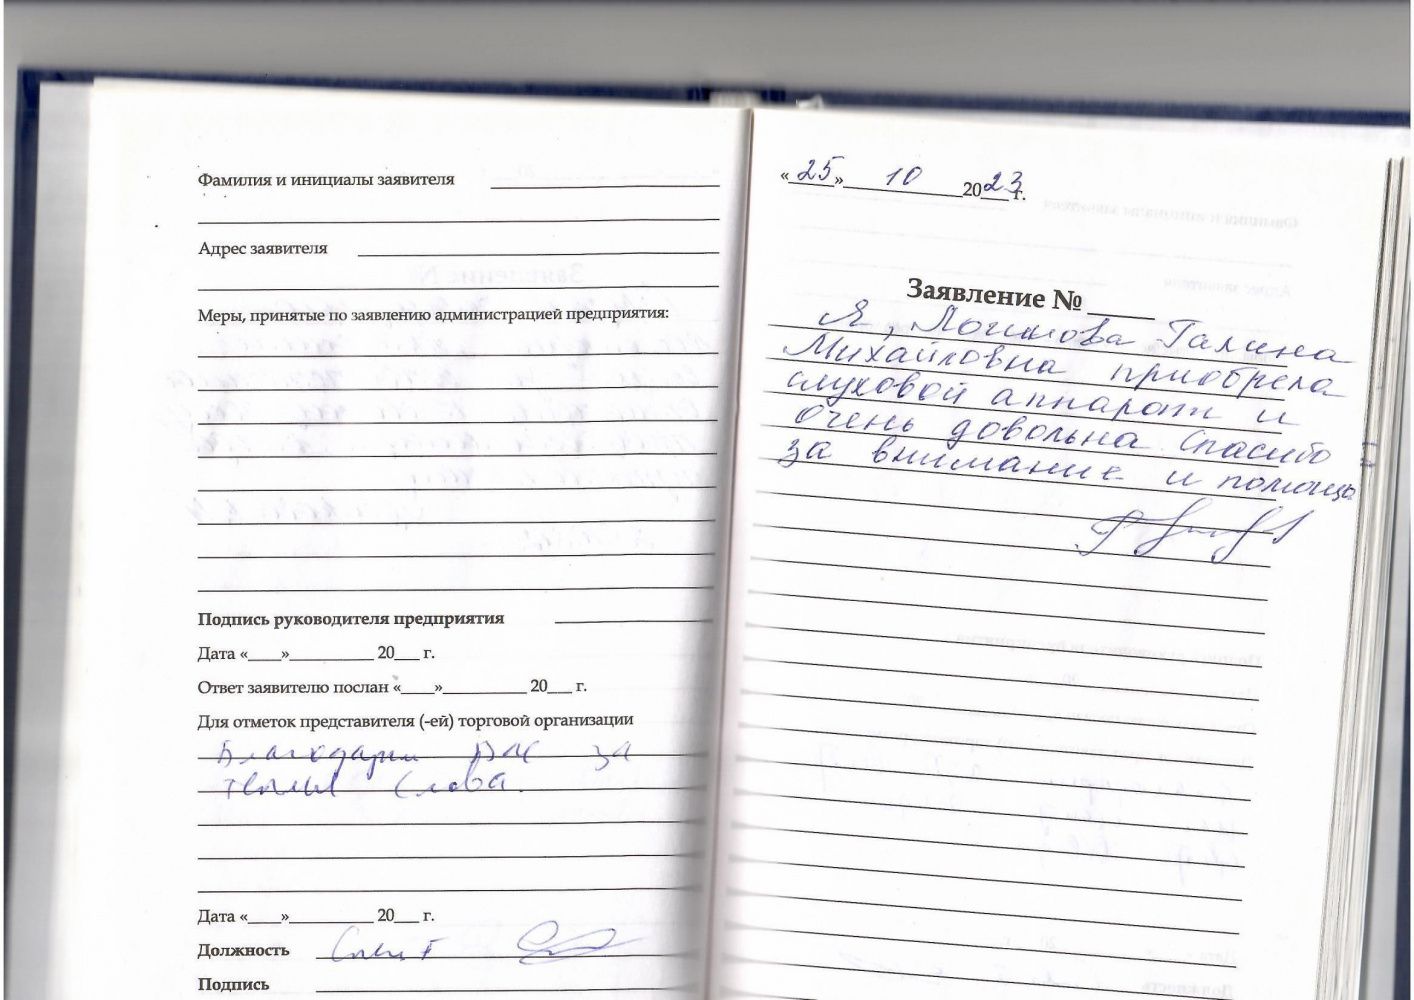 Фамилия и инициалы заявителя
Адрес заявителя
Меры, принятые по заявлению администрацией предприятия:
Подпись руководителя предприятия
Дата «___»_________ 20__ г.
Ответ заявителю послан «___»_________ 20__ г.
Для отметок представителя (-ей) торговой организации
Благодарим Вас за
теплые слова.
Дата «___»_________ 20__ г.
Должность
Подпись
«25» 10 2023 г.
Заявление № ____
Я, Логинова Галина
Михайловна приобрела
слуховой аппарат и
очень довольна. Спасибо
за внимание и помощь